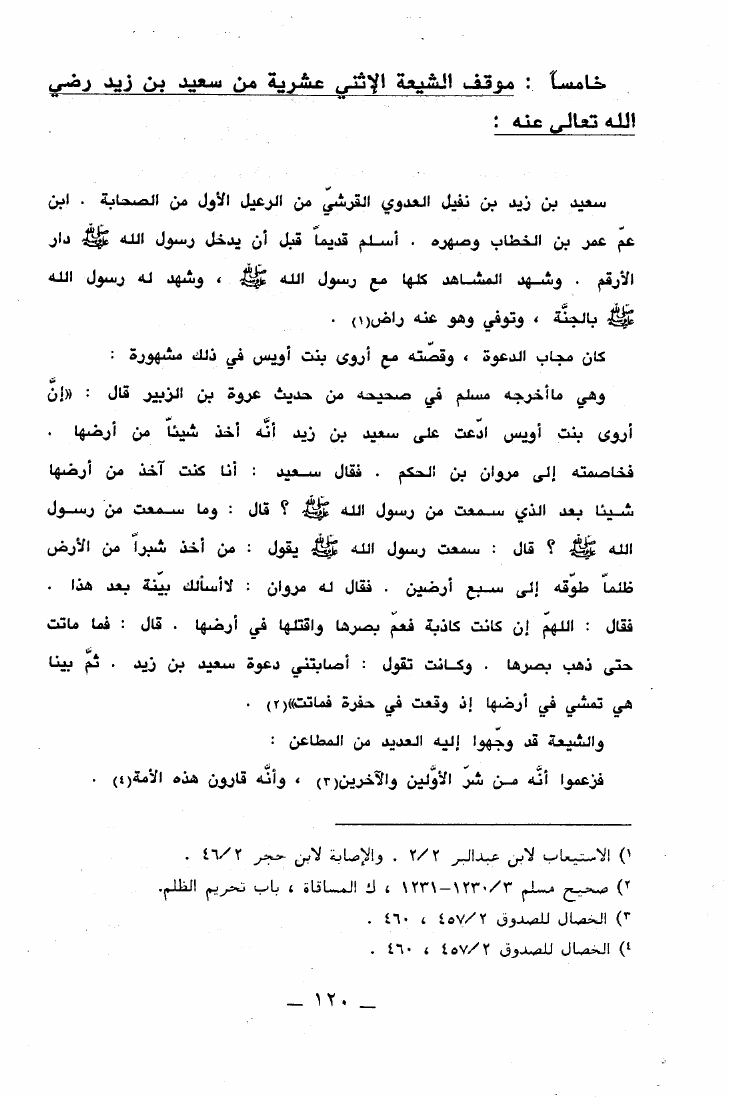 خامساً : موقف الشيعة الإثني عشرية من سعيد بن زيد رضي
الله تعالى عنه :
سعيد بن زيد بن نفيل العدوي القرشيّ من الرعيل الأول من الصحابة . ابن
عمّ عمر بن الخطاب وصهره . أسلم قديماً قبل أن يدخل رسول الله ﷺ دار
الأرقم . وشهد المشاهد كلها مع رسول الله ﷺ ، وشهد له رسول الله
ﷺ بالجنَّة ، وتوفي وهو عنه راض(١) .
كان مجاب الدعوة ، وقصّته مع أروى بنت أويس في ذلك مشهورة :
وهي ماأخرجه مسلم في صحيحه من حديث عروة بن الزبير قال : «إنَّ
أروى بنت أويس ادّعت على سعيد بن زيد أنَّه أخذ شيئاً من أرضها .
فخاصمته إلى مروان بن الحكم . فقال سعيد : أنا كنت آخذ من أرضها
شيئا بعد الذي سمعت من رسول الله ﷺ ؟ قال : وما سمعت من رسول
الله ﷺ ؟ قال : سمعت رسول الله ﷺ يقول : من أخذ شبراً من الأرض
ظلماً طوّقه إلى سبع أرضين . فقال له مروان : لاأسألك بيّنة بعد هذا .
فقال : اللهمّ إن كانت كاذبة فعمّ بصرها واقتلها في أرضها . قال : فما ماتت
حتى ذهب بصرها . وكانت تقول : أصابتني دعوة سعيد بن زيد . ثمَّ بينا
هي تمشي في أرضها إذ وقعت في حفرة فماتت»(٢) .
والشيعة قد وجّهوا إليه العديد من المطاعن :
فزعموا أنَّه من شرّ الأوَّلين والآخرين(٣) ، وأنَّه قارون هذه الأمة(٤) .
١) الاستيعاب لابن عبدالبر ٢/٢ . والإصابة لابن حجر ٤٦/٢ .
٢) صحيح مسلم ١٢٣٠/٣-١٢٣١ ، ك المساقاة ، باب تحريم الظلم.
٣) الخصال للصدوق ٤٥٧/٢ ، ٤٦٠ .
٤) الخصال للصدوق ٤٥٧/٢ ، ٤٦٠ .
— ١٢٠ —